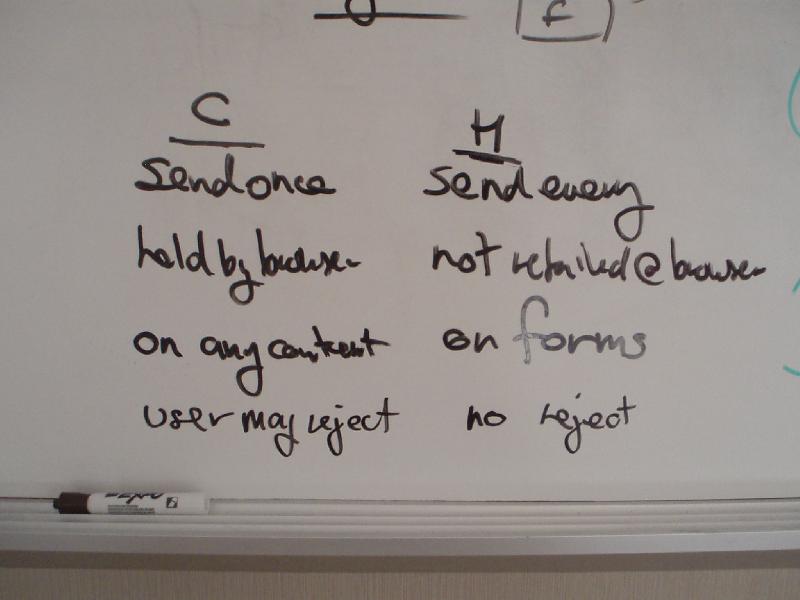 F
C H
send once send every
held by browser not retailed @ browser
on any content on forms
user may reject no reject
EXPO